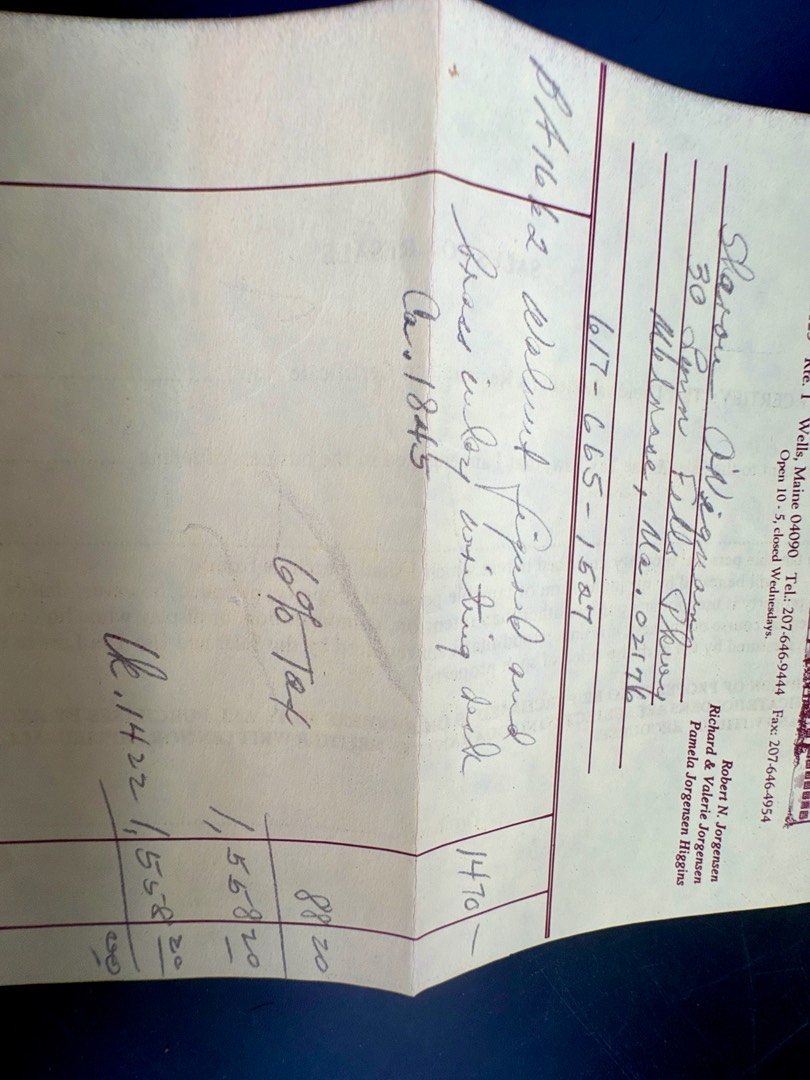 Rte. 1 Wells, Maine 04090 Tel.: 207-646-9444 Fax: 207-646-4954
Open 10 - 5, closed Wednesdays.
Robert N. Jorgensen
Richard & Valerie Jorgensen
Pamela Jorgensen Higgins
Sharon
30 Fells Pkwy
Melrose, Ma. 02176
617-665-1527
Walnut figured and 1470 —
brass inlay writing desk
Ca. 1845
6% Tax 88 20
1,558 20
Ck. 1422 1,558 20
00